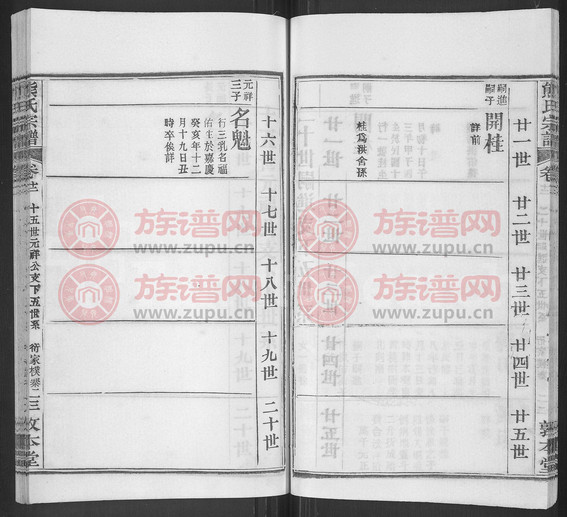 熊氏宗譜
廿一世
廿二世
廿三世
廿四世
廿五世
嗣進
嗣子
開桂
詳前
桂爲洪舍孫
敦本堂
十六世
十七世
十八世
十九世
二十世
元祥
三子
名魁
行三乳名福
佑生於嘉慶
癸亥年十二
月十九日丑
時卒俟詳
熊氏宗譜
十五世元祥公支下五世系
敦本堂
族谱网
www.zupu.cn
族谱网
www.zupu.cn
族谱网
www.zupu.cn
族谱网
www.zupu.cn